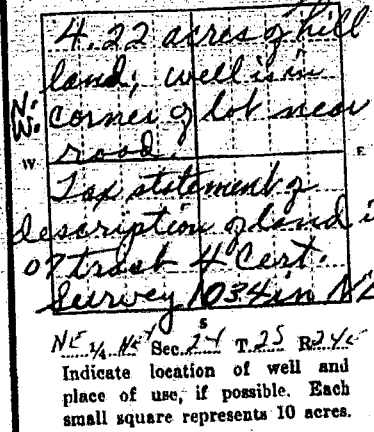 4.22 acres of hill
land; well is in
N.W. corner of lot near
road.
W E
Tax statement of
description of land i
of trast 4 Cert.
Survey 1034 in N
S
NE ¼ NE Sec. 24 T. 2S R. 24E
Indicate location of well and
place of use, if possible. Each
small square represents 10 acres.